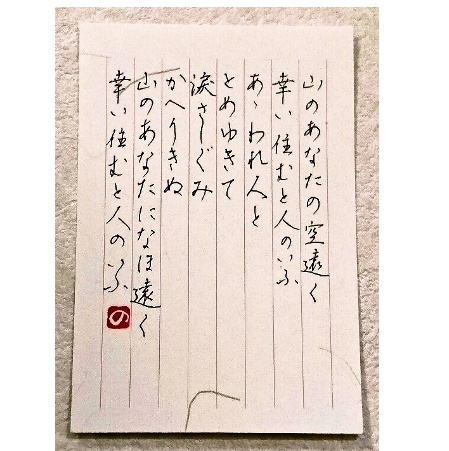 山のあなたの空遠く
幸い住むと人のいふ
あゝわれ人と
とめゆきて
涙さしぐみ
かへりきぬ
山のあなたになほ遠く
幸い住むと人のいふ
の